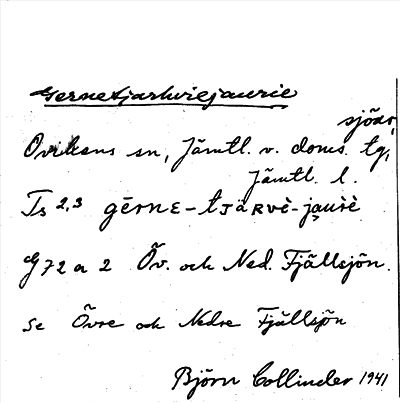 Gernetjarhviejaurie
sjöar,
Ovikens sn, Jämtl. v. doms. tg,
Jämtl. l.
Ts 2,3 gērnε-tjäʀvè-jau̯rè
G 72 a 2 Öv. och Ned. Fjällsjön.
Se Övre och Nedre Fjällsjön
Björn Collinder 1941